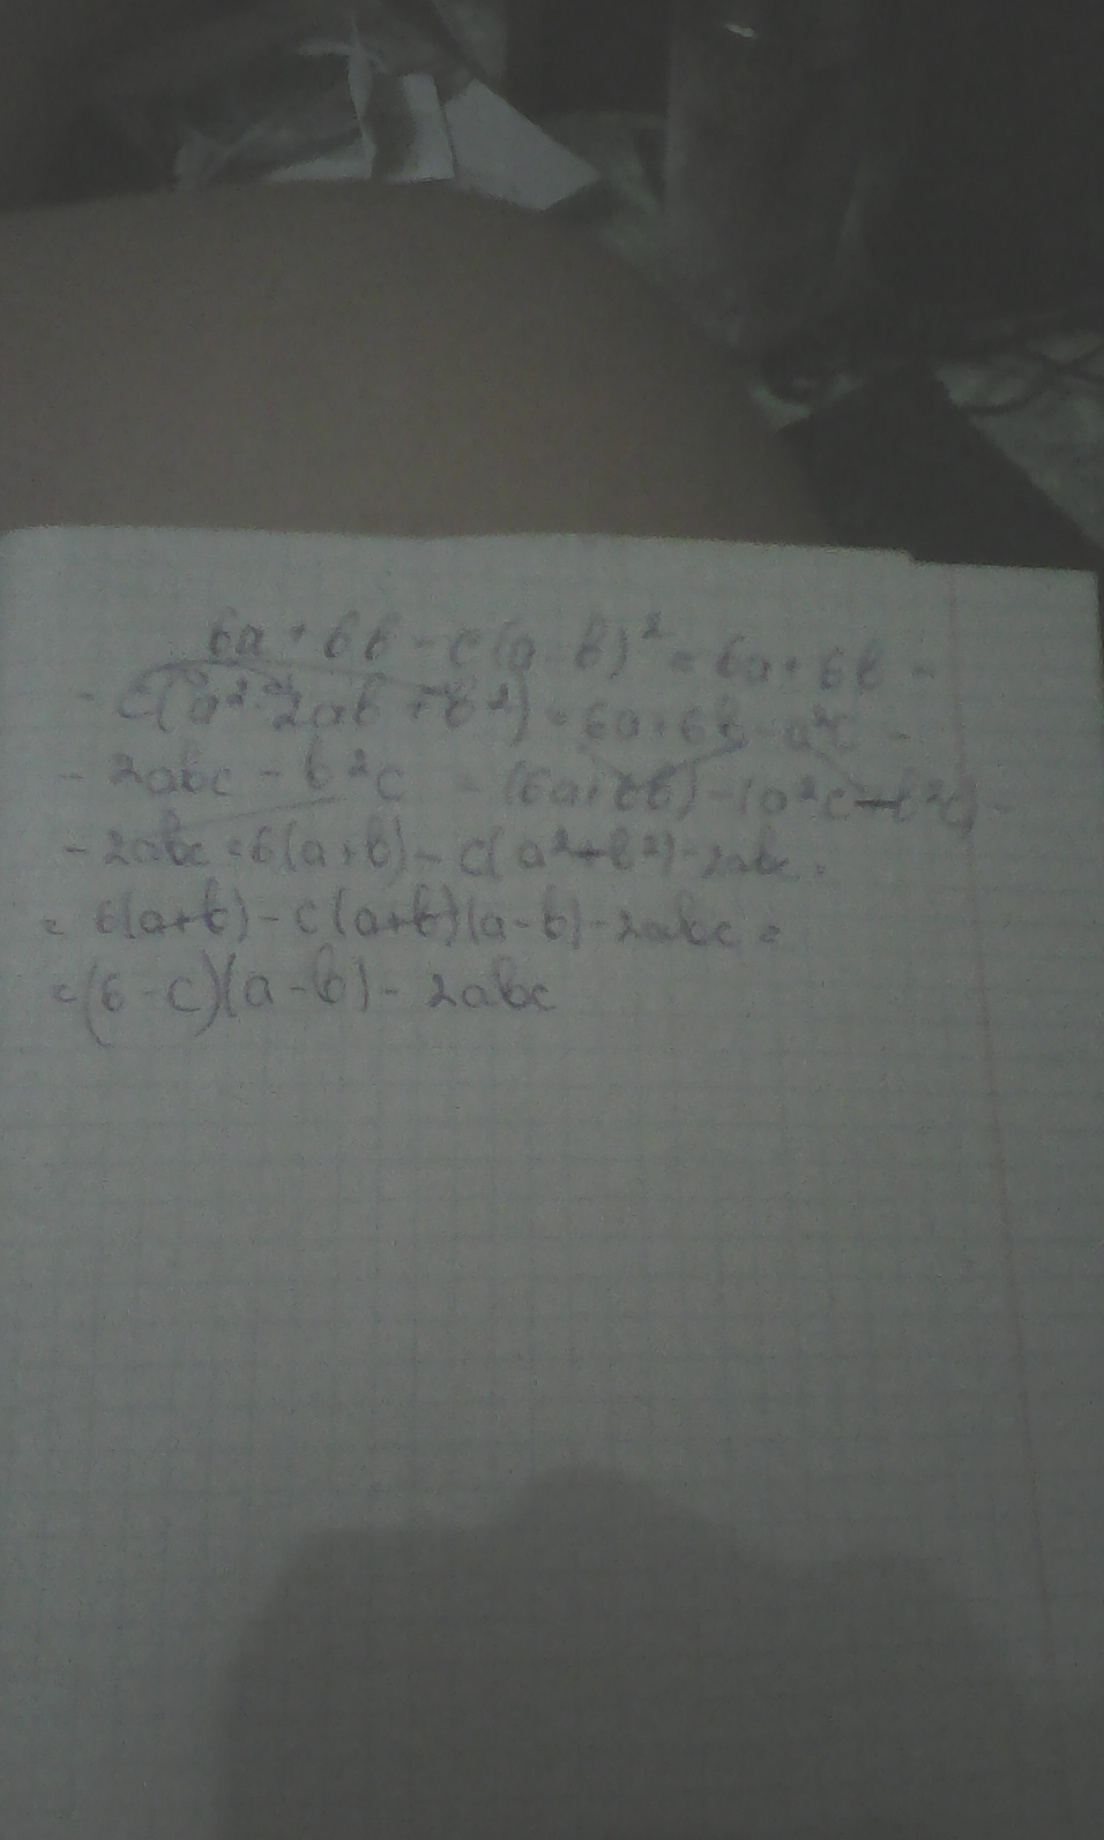 6a + 6b - c(a - b)² = 6a + 6b -
- c(a² - 2ab + b²) = 6a + 6b - a²c -
- 2abc - b²c = (6a + 6b) - (a²c - b²c) -
- 2abc = 6(a + b) - c(a² + b²) - 2abc =
= 6(a + b) - c(a + b)(a - b) - 2abc =
= (6 - c)(a - b) - 2abc